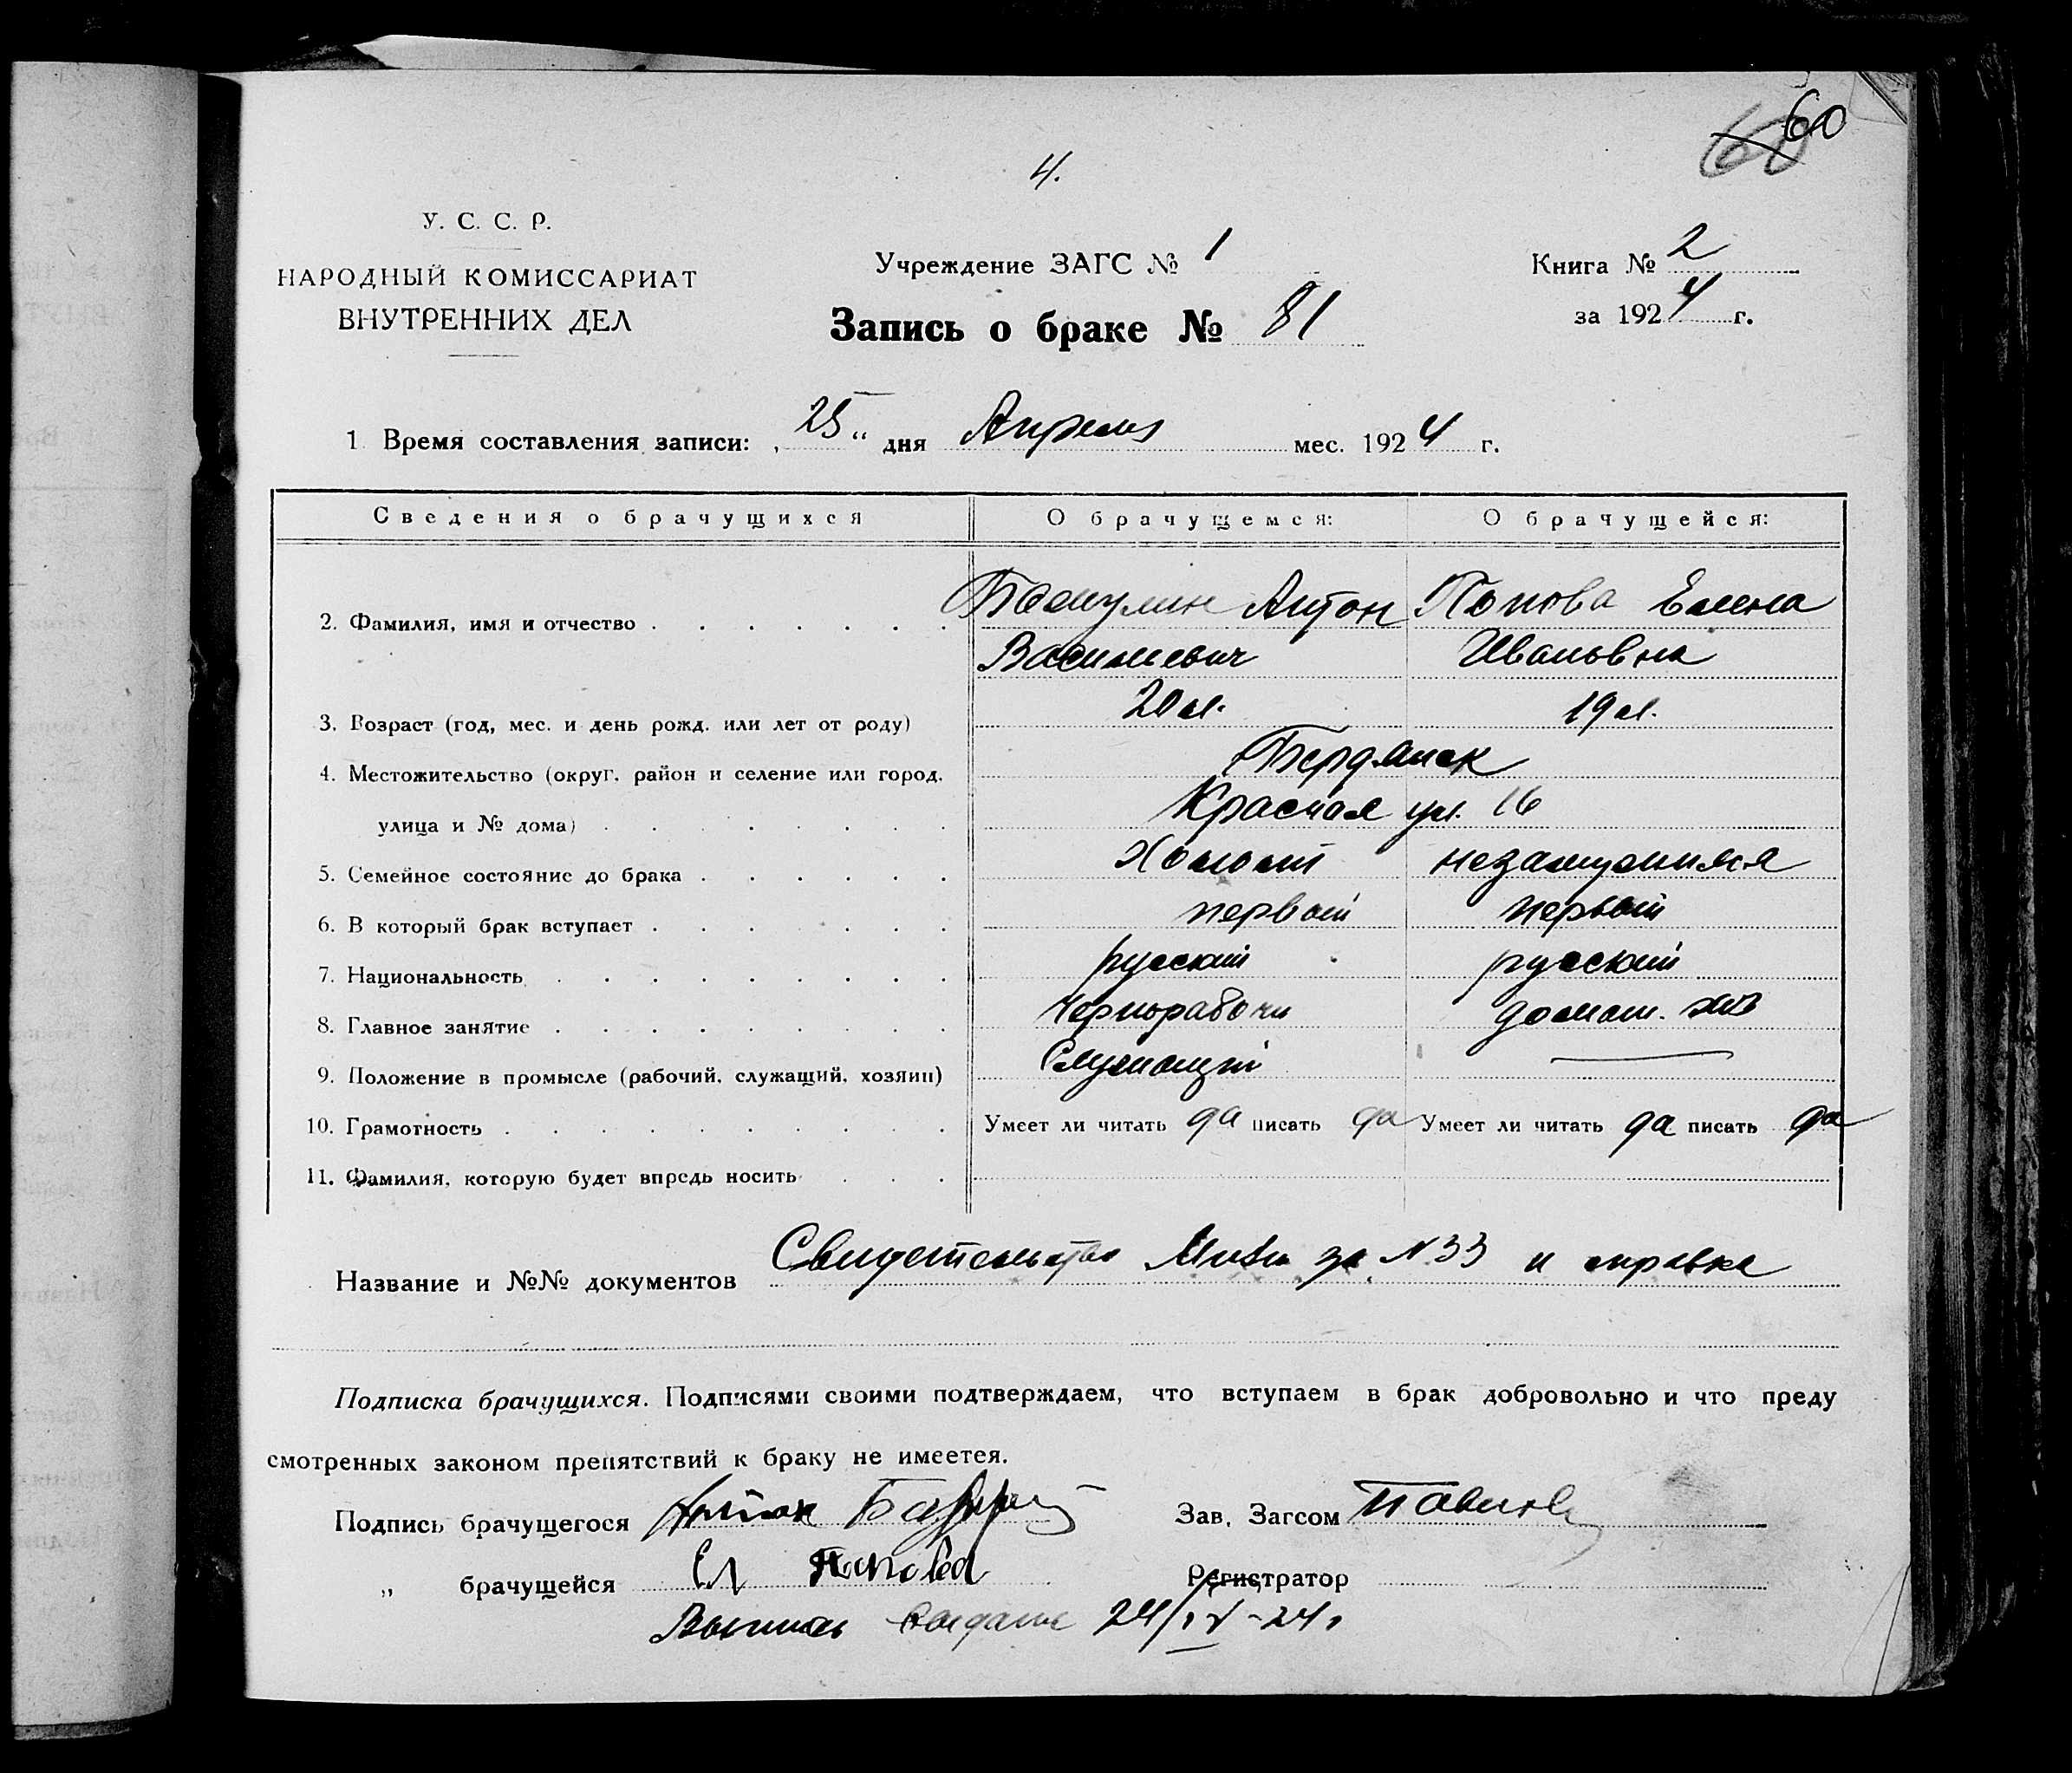 60
60
4.
У. С. С. Р.
НАРОДНЫЙ КОМИССАРИАТ
ВНУТРЕННИХ ДЕЛ
Учреждение ЗАГС № 1
Книга № 2
за 1924 г.
Запись о браке № 81
1. Время составления записи: „25“ дня Апреля мес. 1924 г.
Сведения о брачущихся О брачущемся: О брачущейся:
2. Фамилия, имя и отчество Антон Попова Елена
Васильевич Ивановна
3. Возраст (год, мес. и день рожд. или лет от роду) 20 л. 19 л.
4. Местожительство (округ, район и селение или город, Бердянск
улица и № дома) Красная ул. 16
5. Семейное состояние до брака Холост незамужняя
6. В который брак вступает первый первый
7. Национальность русский русский
8. Главное занятие Чернорабочи домаш. хоз
9. Положение в промысле (рабочий, служащий, хозяин) Служащий —
10. Грамотность Умеет ли читать да писать да Умеет ли читать да писать да
11. Фамилия, которую будет впредь носить
Название и №№ документов Свидетельство за N 33 и справка
Подписка брачущихся. Подписями своими подтверждаем, что вступаем в брак добровольно и что преду
смотренных законом препятствий к браку не имеется.
Подпись брачущегося Антон Зав. Загсом
„ брачущейся Ел Попова Регистратор
Выпись выдана 24/IV-24 г